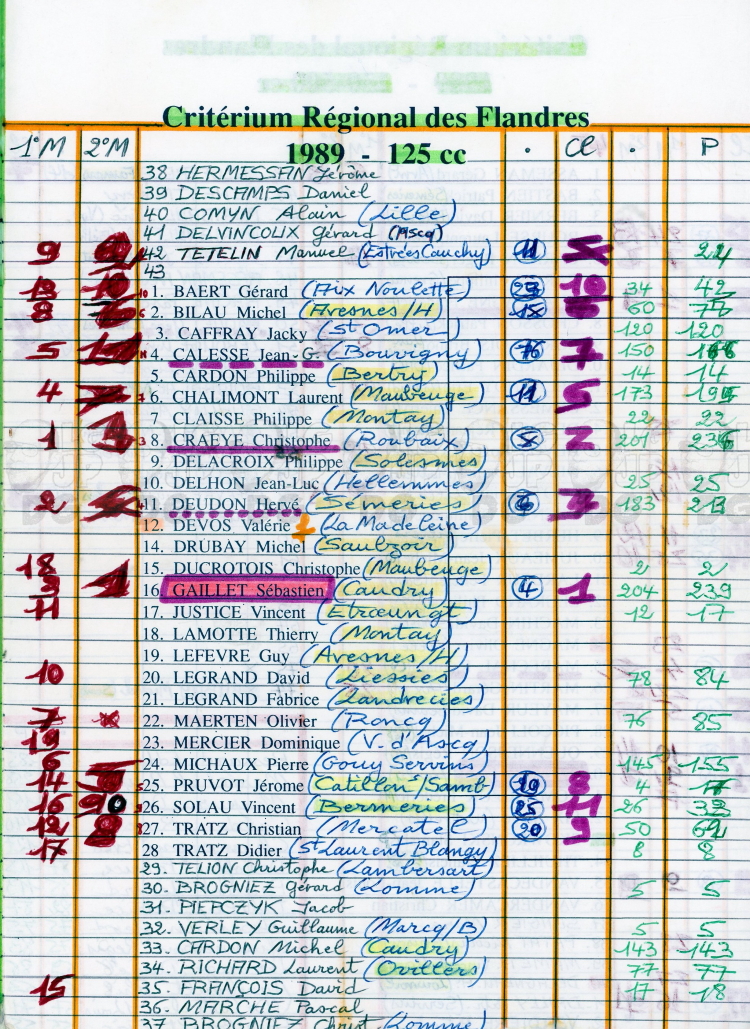 Critérium Régional des Flandres
1°M 2°M 1989 - 125 cc . Cl . P
38 HERMESSAN Jérôme
39 DESCAMPS Daniel
40 COMYN Alain (Lille)
41 DELVINCOUX Gérard (Ascq)
9 42 TETELIN Manuel (Estrées Cauchy) 11 24
43
13 1. BAERT Gérard (Aix Noulette) 23 10 34 42
8 2. BILAU Michel (Avesnes/H) 15 60
3. CAFFRAY Jacky (St Omer) 120 120
5 4. CALESSE Jean-G. (Bouvigny) 16 7 150
5. CARDON Philippe (Bertry) 14 14
4 6. CHALIMONT Laurent (Maubeuge) 11 5 173
7. CLAISSE Philippe (Montay) 22 22
1 8. CRAEYE Christophe (Roubaix) 8 2 201 236
9. DELACROIX Philippe (Solesmes)
10. DELHON Jean-Luc (Hellemmes) 25 25
2 11. DEUDON Hervé (Sémeries) 6 3 183 213
12. DEVOS Valérie (La Madeleine)
14. DRUBAY Michel (Saulzoir)
18 15. DUCROTOIS Christophe (Maubeuge) 2 2
3 16. GAILLET Sébastien (Caudry) 4 1 204 239
11 17. JUSTICE Vincent (Etrœungt) 12 17
18. LAMOTTE Thierry (Montay)
19. LEFEVRE Guy (Avesnes/H)
10 20. LEGRAND David (Liessies) 78 84
21. LEGRAND Fabrice (Landrecies)
7 22. MAERTEN Olivier (Roncq) 76 85
19 23. MERCIER Dominique (V. d'Ascq)
6 24. MICHAUX Pierre (Gouy Servins) 145 155
14 25. PRUVOT Jérome (Catillon s/Samb) 19 8 4
16 26. SOLAU Vincent (Bermeries) 25 11 26 33
12 27. TRATZ Christian (Mercatel) 20 9 50
17 28 TRATZ Didier (St Laurent Blangy) 8 8
29. TELION Christophe (Lambersart)
30. BROGNIEZ Gérard (Lomme) 5 5
31. PIEPCZYK Jacob
32. VERLEY Guillaume (Marcq/B) 5 5
33. CARDON Michel (Caudry) 143 143
34. RICHARD Laurent (Ovillers) 77 77
15 35. FRANÇOIS David 17 18
36. MARCHE Pascal
37 BROGNIEZ Christ (Lomme)